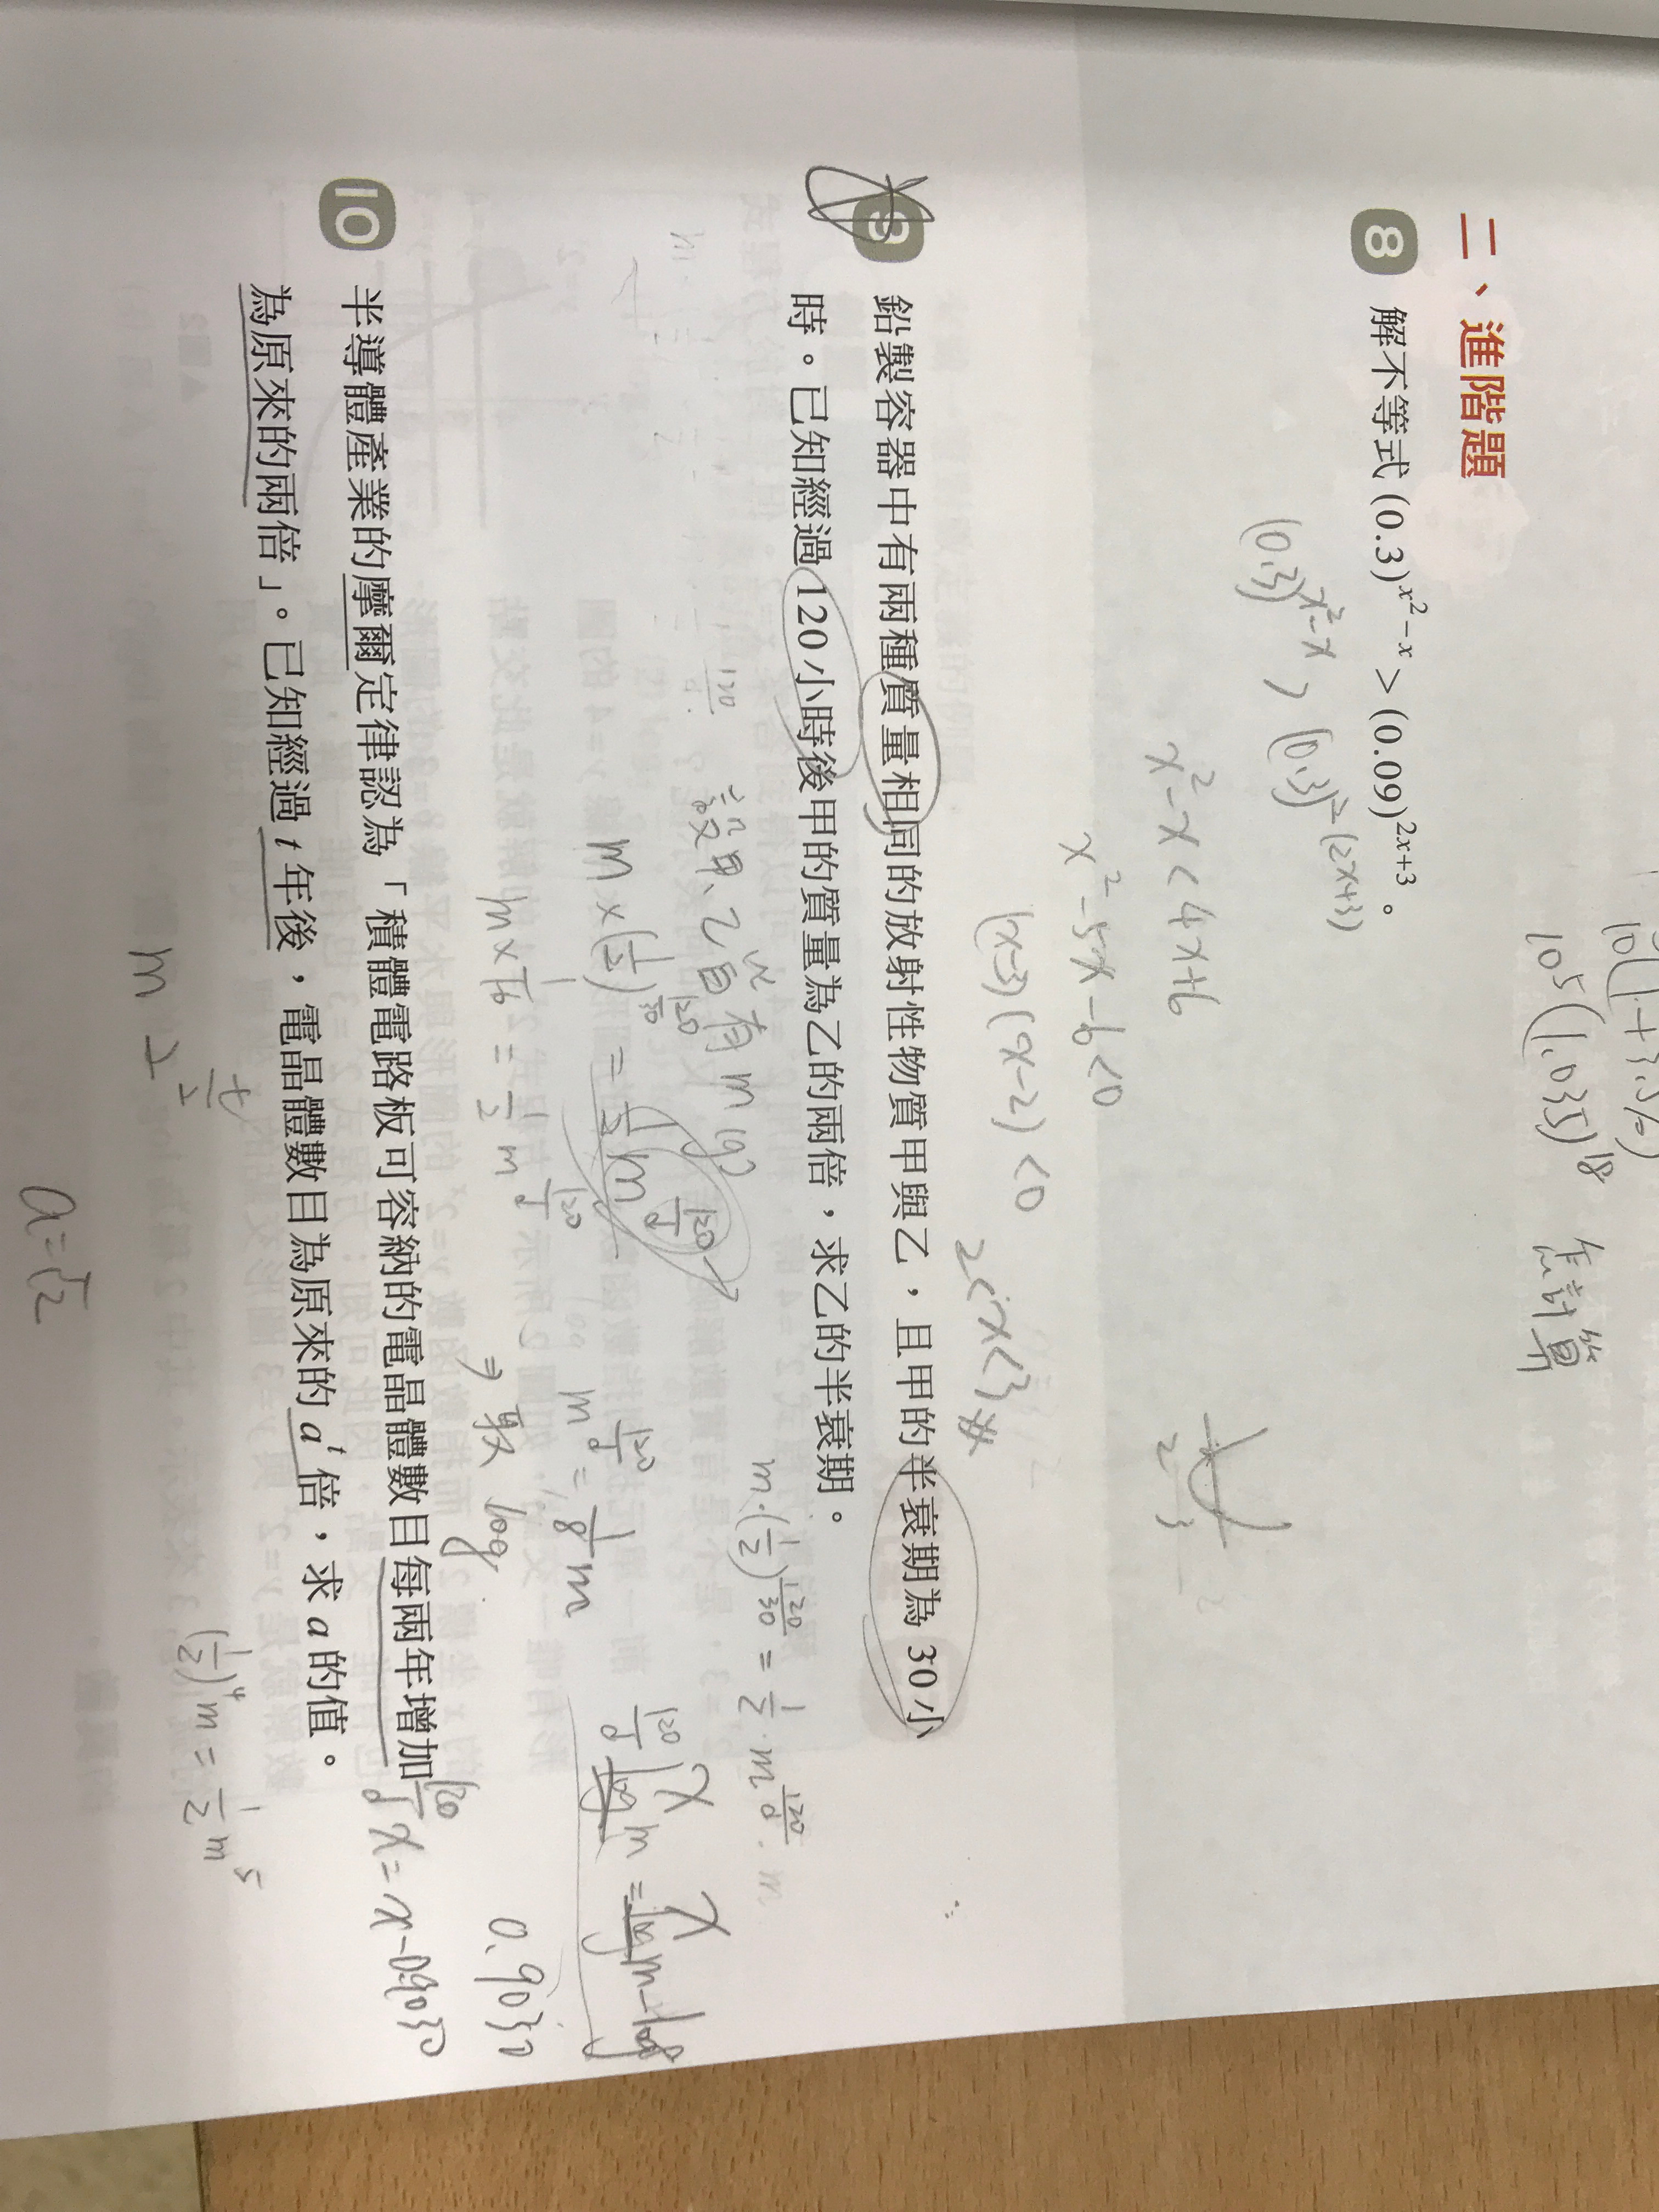 10(1+3.5%)
10⁵(1.035)¹⁸ 怎計算
二、進階題
8 解不等式 (0.3)^{x²−x} > (0.09)^{2x+3}。
(0.3)^{x²-x} > (0.3)^{2(2x+3)}
x²-x<4x+6
x²-5x-6<0
(x-3)(x-2)<0
2<x<3
2 3
9 鉛製容器中有兩種質量相同的放射性物質甲與乙，且甲的半衰期為 30 小
時。已知經過 120 小時後甲的質量為乙的兩倍，求乙的半衰期。
設甲、乙皆有 m (g)
m·(1/2)^{120/30} = 1/2·m^{120/d}·m
m×(1/2)^{120/30} = 1/2 m^{120/d}
m×1/16 = 1/2 m^{120/d}
m^{120/d} = 1/8 m
⇒ 取 log
0.9030
120/d x = x-0.9030
10 半導體產業的摩爾定律認為「積體電路板可容納的電晶體數目每兩年增加
為原來的兩倍」。已知經過 t 年後，電晶體數目為原來的 aᵗ 倍，求 a 的值。
(1/2)⁴m = 1/2 m⁵
m 2^{t/2}
a=√2